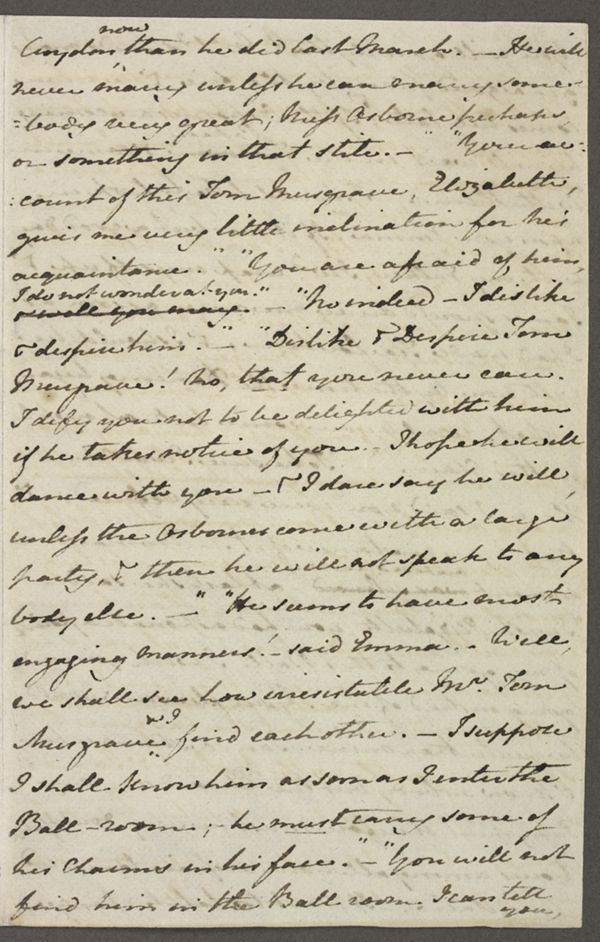 now
Croydon than he did last March. — He will
never marry unless he can marry some=
=body very great; Miss Osborne perhaps
or something in that stile. —" "Your ac=
:count of this Tom Musgrave, Elizabeth,
gives me very little inclination for his
acquaintance." "You are afraid of him,
I do not wonder at you."
— "No indeed — I dislike
& despise him." — "Dislike & Despise Tom
Musgrave! No, that you never can.
I defy you not to be delighted with him
if he takes notice of you. — I hope he will
dance with you — & I dare say he will,
unless the Osbornes come with a large
party, & then he will not speak to any
body else. —" "He seems to have most
engaging manners! — said Emma. — Well,
we shall see how irresistable Mr. Tom
Musgrave & I find each other. — I suppose
I shall know him as soon as I enter the
Ball-room; — he must carry some of
his Charms in his face." — "You will not
find him in the Ball room I can tell
you,